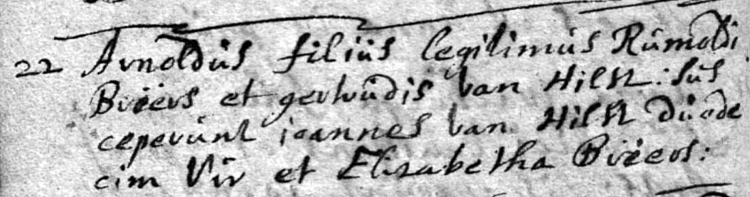 22 Arnoldus filius legitimus Rumoldi
Briers et gertrudis van Hilst: sus
ceperunt ioannes van Hilst duode
cim Vir et Elisabetha Briers: